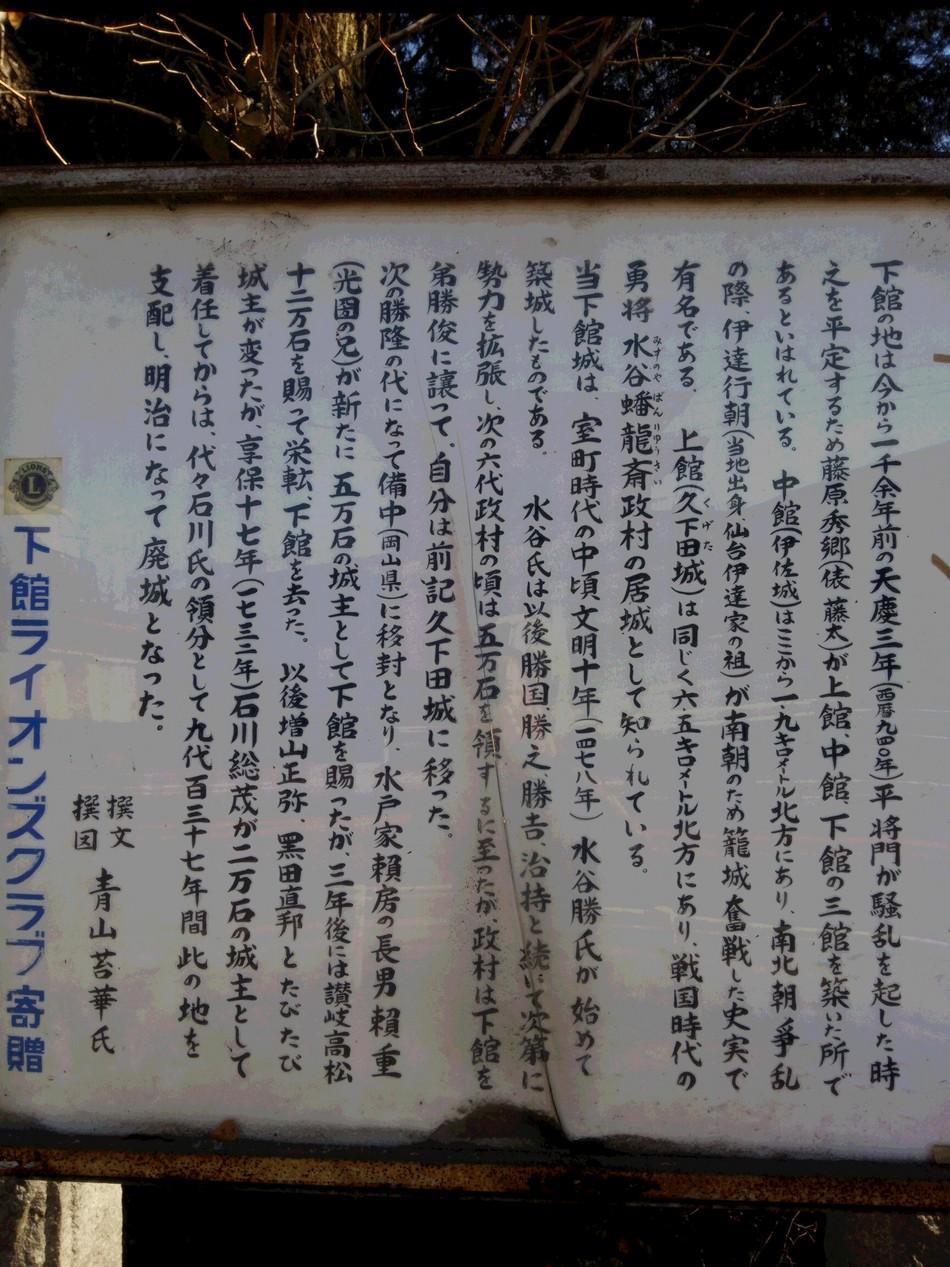 下館の地は今から一千余年前の天慶三年(西暦九四〇年)平将門が騒乱を起した時
之を平定するため藤原秀郷(俵藤太)が上館、中館、下館の三館を築いた所で
あるといはれている。中館(伊佐城)はミから一、九キロメートル北方にあり、南北朝争乱
の際、伊達行朝(当地出身、仙台伊達家の祖)が南朝のため籠城奮戦した史実で
有名である。上館(久下田城)は同じく六五キロメートル北方にあり、戦国時代の
くげた
勇将 水谷蟠龍斎政村の居城として知られている。
みずのや ばんりゆうさい
当下館城は、室町時代の中頃文明十年(一四七八年)水谷勝氏が始めて
築城したものである。水谷氏は以後勝国、勝之、勝吉、治持と続いて次第に
勢力を拡張し、次の六代政村の頃は五万石を領するに至ったが、政村は下館を
弟勝俊に譲って、自分は前記久下田城に移った。
次の勝隆の代になって備中(岡山県)に移封となり、水戸家頼房の長男頼重
(光圀の兄)が新たに五万石の城主として下館を賜ったが、三年後には讃岐高松
十二万石を賜って栄転、下館を去った。以後増山正弥、黒田直邦とたびたび
城主が変ったが、享保十七年(一七三二年)石川総茂が二万石の城主として
着任してからは、代々石川氏の領分として九代百三十七年間此の地を
支配し、明治になって廃城となった。
撰文
撰図
青山苔華氏
LIONS
L
下館ライオンズクラブ寄贈